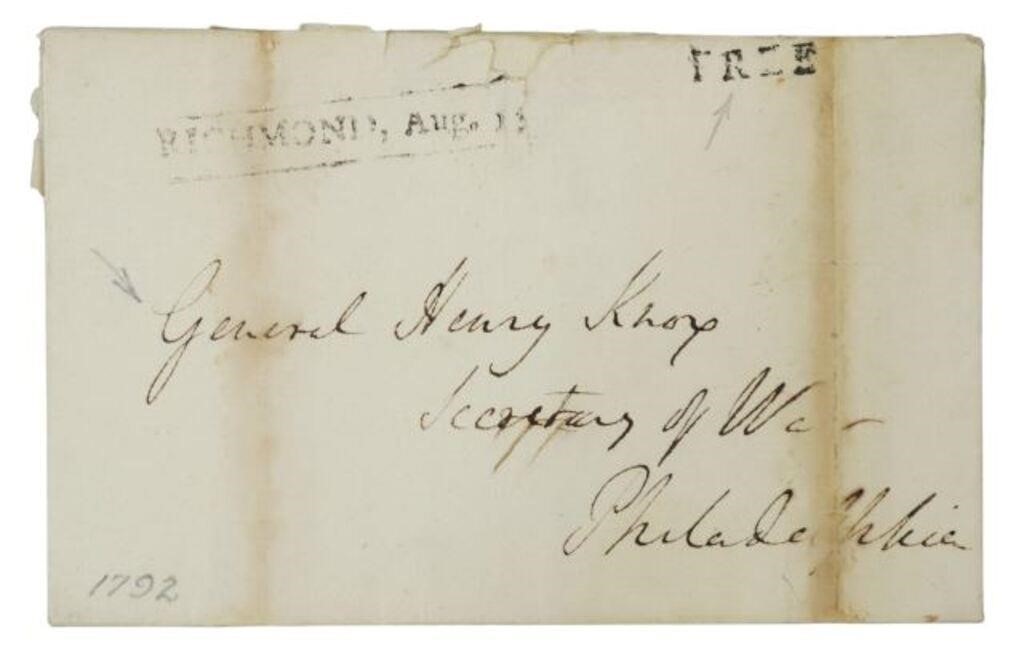 FREE
RICHMOND, Aug.
General Henry Knox
Secretary of War
Philadelphia
1792